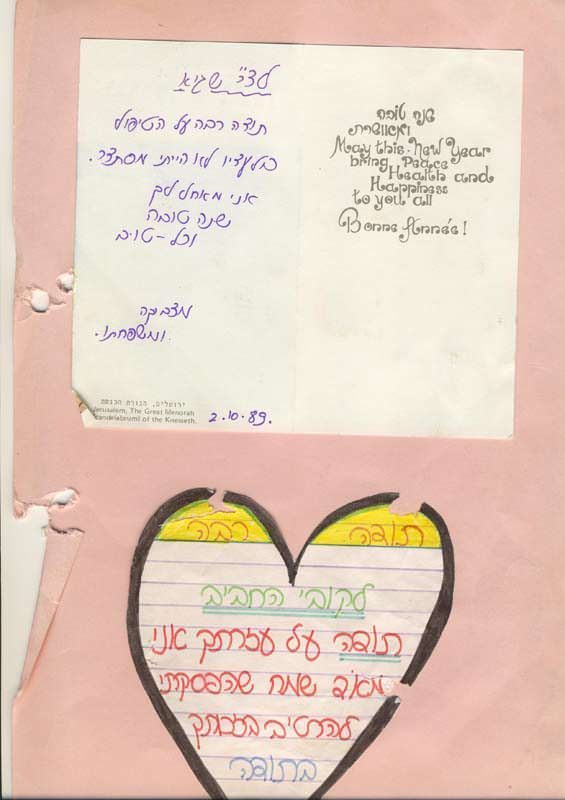 לד"ר שגיא
תודה רבה על הטיפול
בלעדיו לא הייתי מסתדר.
אני מאחל לך
שנה טובה
וכל-טוב
ומשפחתו.
ירושלים, מנורת הכנסת
Jerusalem, The Great Menorah
(Candelabrum) of the Knesseth.
2.10.89.
שנה טובה
ומאושרת
May this New Year
bring Peace
Health and
Happiness
to you all
Bonne Année!
תודה רבה
לקובי החביב
תודה על עזרתך אני
מאוד שמח שהפסקתי
להרטיב בזכותך
בתודה